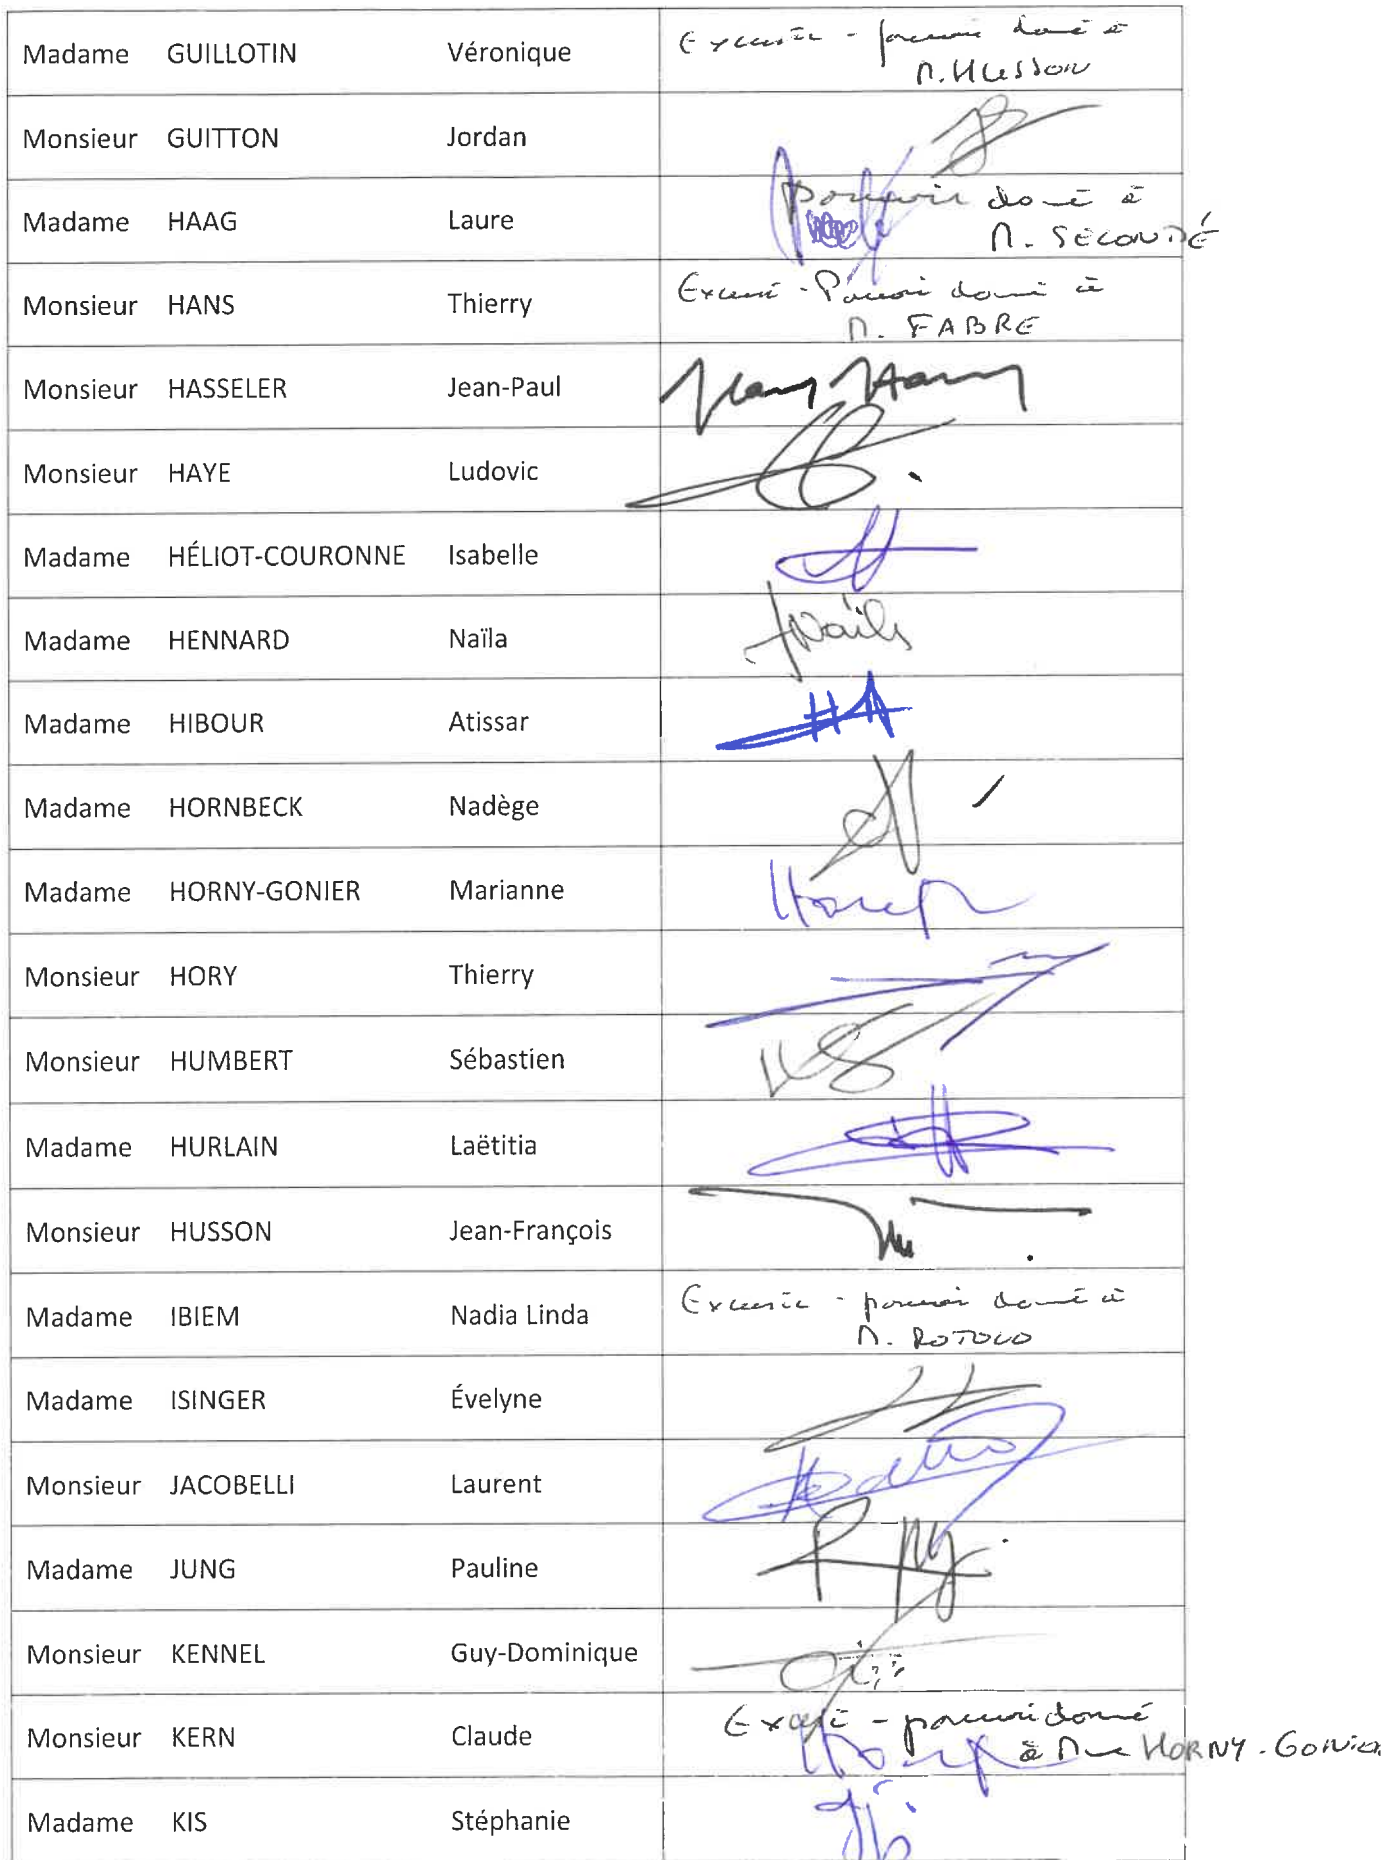 Madame GUILLOTIN Véronique Excusée - pouvoir donné à
M. HUSSON
Monsieur GUITTON Jordan
Madame HAAG Laure pouvoir donné à
M. SECONDÉ
Monsieur HANS Thierry Excusé - Pouvoir donné à
M. FABRE
Monsieur HASSELER Jean-Paul
Monsieur HAYE Ludovic
Madame HÉLIOT-COURONNE Isabelle
Madame HENNARD Naïla
Madame HIBOUR Atissar
Madame HORNBECK Nadège
Madame HORNY-GONIER Marianne
Monsieur HORY Thierry
Monsieur HUMBERT Sébastien
Madame HURLAIN Laëtitia
Monsieur HUSSON Jean-François
Madame IBIEM Nadia Linda Excusée - pouvoir donné à
M. ROTOLO
Madame ISINGER Évelyne
Monsieur JACOBELLI Laurent
Madame JUNG Pauline
Monsieur KENNEL Guy-Dominique
Monsieur KERN Claude Excusé - pouvoir donné
à Mme HORNY-GONIER
Madame KIS Stéphanie